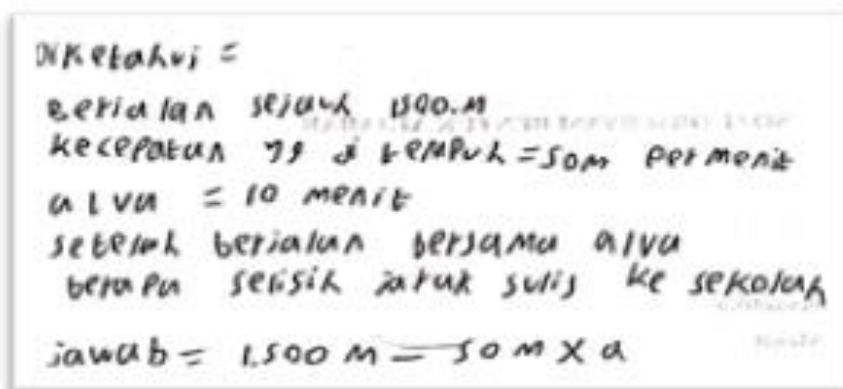 Diketahui =
Berjalan sejauh 1500.M
kecepatan yg di tempuh = 50m per menit
alva = 10 menit
setelah berjalan bersama alva
berapa selisih jarak sulis ke sekolah
jawab = 1.500 m - 50 m x a